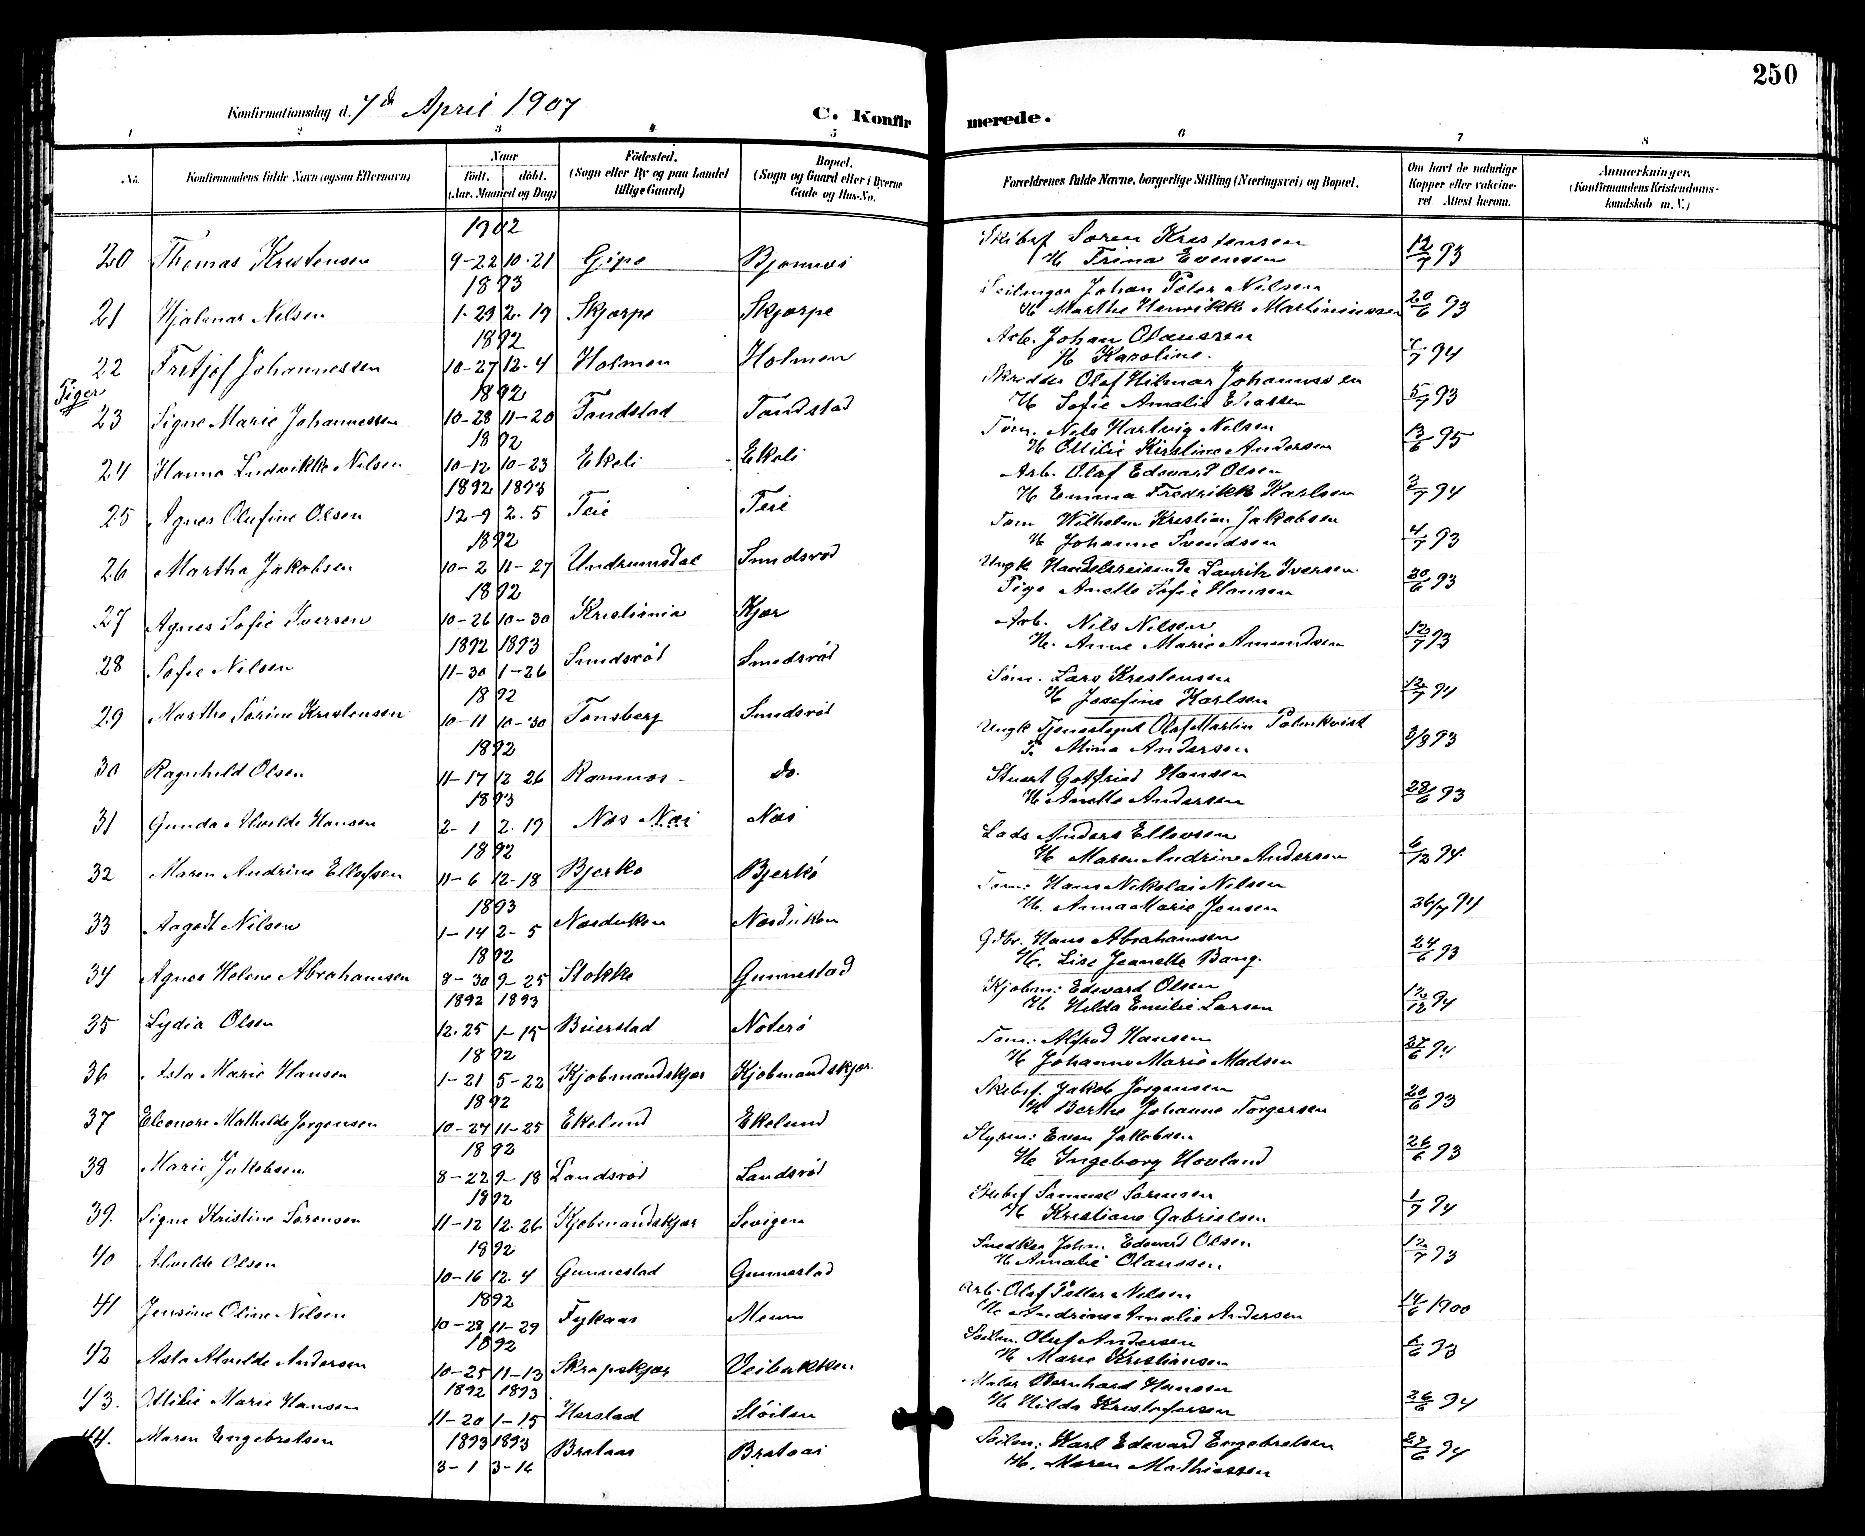 250
Konfirmationsdag d. 7de April 1907
C. Konfirmerede.
1 2 3 4 5 6 7 8
No. Konfirmandens fulde Navn (ogsaa Efternavn) Naar født. døbt. (Aar, Maaned og Dag) Fødested. (Sogn eller By og paa Landet tillige Gaard) Bopæl. (Sogn og Gaard eller i Byerne Gade og Hus-No. Forældrenes fulde Navne, borgerlige Stilling (Næringsvei) og Bopæl. Om havt de naturlige Kopper eller vaccineret Attest herom. Anmærkninger. (Konfirmandens Kristendomskundskab m. V.)
1902
20 Thomas Kristensen 9-22 10-21 Gipø Bjørnevi Skibsf Søren Kristensen H Trina Evensen 12/7 93
1893
21 Hjalmar Nilsen 1-23 2-19 Skjærpe Skjærpe Johan Peter Nilsen H Marthe Henrikke Martiniussen 20/6 93
1892
22 Fritjof Johannessen 10-27 12-4 Holmen Holmen Arb. Johan Olaussen H Karoline. 7/7 94
Piger
1892
23 Signe Marie Johannessen 10-28 11-20 Tandstad Tandstad Skrædder Olaf Hilmar Johannssen H Sofie Amalie Eliassen 5/7 93
1892
24 Hanna Ludvikke Nilsen 10-12 10-23 Ekeli Ekeli Tøm. Nils Hartvig Nilsen H Ottilie Kirstine Andersen 13/6 95
1892 1893
25 Agnes Olufine Olsen 12-9 2-5 Teie Teie Arb. Olaf Edvard Olsen H Emma Fredrikke Karlsen 3/7 94
1892
26 Martha Jakobsen 10-2 11-27 Undrumsdal Smidsrød Tøm Wilhelm Kristian Jakobsen H Johanne Svendsen 4/7 93
1892
27 Agnes Sofie Iversen 10-26 10-30 Kristiania Kjær Ungk Handelsreisende Lauritz Iversen Pige Anette Sofie Hansen 20/6 93
1892 1893
28 Sofie Nilsen 11-30 1-26 Smidsrød Smidsrød Arb. Nils Nilssen H. Anne Marie Amundsen 12/7 93
1892
29 Marthe Sørine Kristensen 10-11 10-30 Tønsberg Smidsrød Tøm. Lars Kristensen H Josefine Karlsen 12/7 94
1892
30 Ragnhild Olsen 11-17 12 26 Ramnæs do. Ungk Tjenestegut Olaf Martin Palmkvist P. Mina Andersen 3/8 93
1893
31 Gunda Alvilde Hansen 2-1 2-19 Nes Nøi Nes Stuert Gotfried Hansen H Anette Andersen 28/6 93
1892
32 Maren Andrine Ellefsen 11-6 12-18 Bjerkø Bjerkø Lods Anders Ellevsen H Maren Andrine Andersen 6/12 94
1893
33 Aagot Nilsen 1-14 2-5 Nesduken Nesduken Tøm: Hans Nikolai Nilsen H. Anna Marie Jensen 26/7 94
1892
34 Agnes Helene Abrahamsen 8-30 9-25 Stokke Gunnestad Gdbr. Hans Abrahamsen H. Lise Jeanette Bang. 24/6 93
1892 1893
35 Lydia Olsen 12-25 1-15 Buerstad Nøterø Kjøbm: Edvard Olsen H Hilda Emilie Larsen 12/12 94
1892
36 Asta Marie Hansen 1-21 5-22 Kjøbmandskjær Kjøbmandskjær Tøm: Alfred Hansen H Johanne Marie Madsen 27/6 94
1892
37 Eleonore Mathilde Jørgensen 10-27 11-25 Ekelund Ekelund Skibsf. Jakob Jørgensen H Berthe Johanne Torgersen 20/6 93
1892
38 Marie Jakobsen 8-22 9-18 Landsrød Landsrød Styrm: Even Jakobsen H Ingeborg Hovland 26/6 93
1892
39. Signe Kristine Sørensen 11-12 12-26 Kjøbmandskjær Sevigen Skibsf Samuel Sørensen H Kristiane Gabrielsen 1/7 94
1892
40 Alvilde Olsen 10-16 12-4 Gunnestad Gunnestad Snedker John Edvard Olsen H Amalie Olaussen 12/7 93
1892
41 Jensine Oline Nilsen 10-28 11-29 Fykaas Meum Arb. Olaf Petter Nilsen H Andrine Amalie Andersen 14/6 1900
1892
42 Asta Alvilde Andersen 10-25 11-13 Skrapskjær Veibakken Seilm. Oluf Andersen H Marie Kristiansen 6/6 93
1892 1893
43. Ottilie Marie Hansen 11-20 1-15 Herstad Støiten Maler Bernhard Hansen H Hilda Kristofersen 26/6 94
1893 1893
44. Maren Engebretsen 3-1 3-16 Brataas Brataas Seilm: Karl Edvard Engebretsen H. Maren Mathiassen 27/6 94